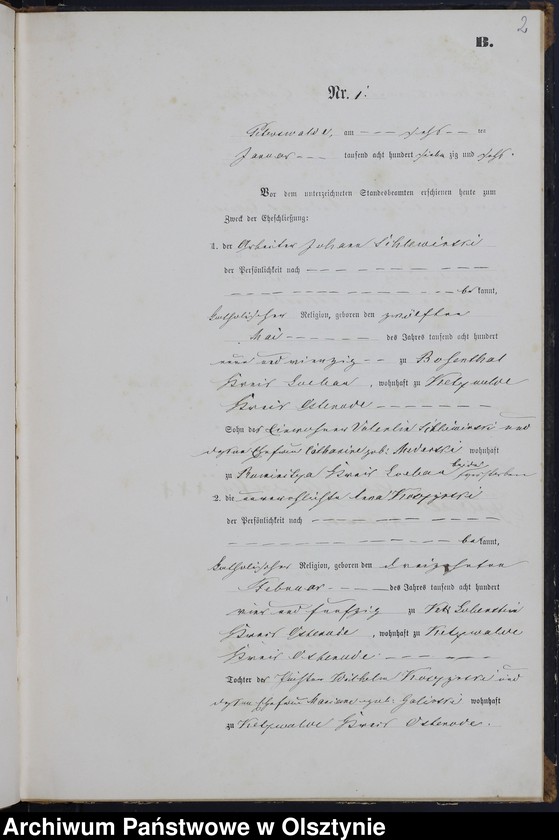 2
B.
Nr. 1.
am sechs ten
Januar tausend acht hundert sieben zig und sechs.
Vor dem unterzeichneten Standesbeamten erschienen heute zum
Zweck der Eheschließung:
1. der Arbeiter Johann
der Persönlichkeit nach
be kannt,
katholischer Religion, geboren den zwölften
Mai des Jahres tausend acht hundert
neun und vierzig zu Rosenthal
Kreis Loebau, wohnhaft zu
Kreis Osterode
Sohn des Einwohner Valentin und
dessen Ehefrau Catharine geb: wohnhaft
zu Kreis Loebau beide verstorben
2. die unverehelichte
der Persönlichkeit nach
be kannt,
katholischer Religion, geboren den dreizehnten
Februar des Jahres tausend acht hundert
vier und funfzig zu
Kreis Osterode, wohnhaft zu
Kreis Osterode
Tochter des Wilhelm und
dessen Ehefrau geb: wohnhaft
zu Kreis Osterode.
Archiwum Państwowe w Olsztynie